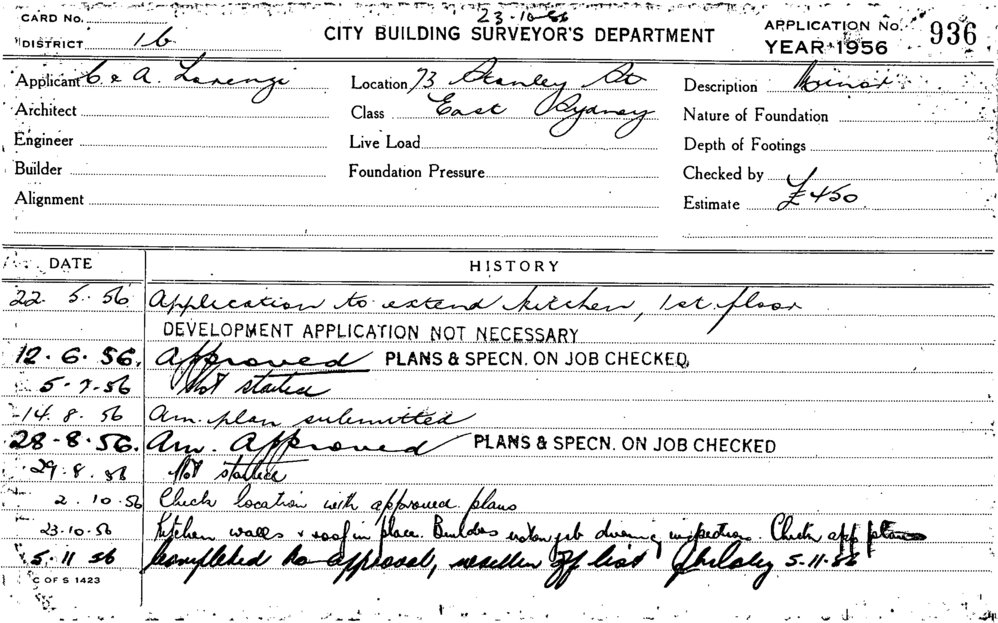 CARD No.
23-10-56
CITY BUILDING SURVEYOR'S DEPARTMENT
APPLICATION No. 936
DISTRICT 16
YEAR 1956
Applicant C & A. Lorenzi
Location 73 Stanley St
Description Minor
Architect
Class East Sydney
Nature of Foundation
Engineer
Live Load
Depth of Footings
Builder
Foundation Pressure
Checked by
Alignment
Estimate £450
DATE HISTORY
22. 5. 56 Application to extend kitchen, 1st. floor
DEVELOPMENT APPLICATION NOT NECESSARY
12. 6. 56. Approved PLANS & SPECN. ON JOB CHECKED
5-7-56 Not started
14. 8. 56 Am. plan submitted
28-8-56. Am. Approved PLANS & SPECN. ON JOB CHECKED
29. 8. 56 Not started
2. 10. 56 Check location with approved plans
23-10-56 Kitchen walls & roof in place. Builders not on job during inspection. Check app plans
5. 11 56 Completed to approval, off list 5-11-56
C OF S 1423